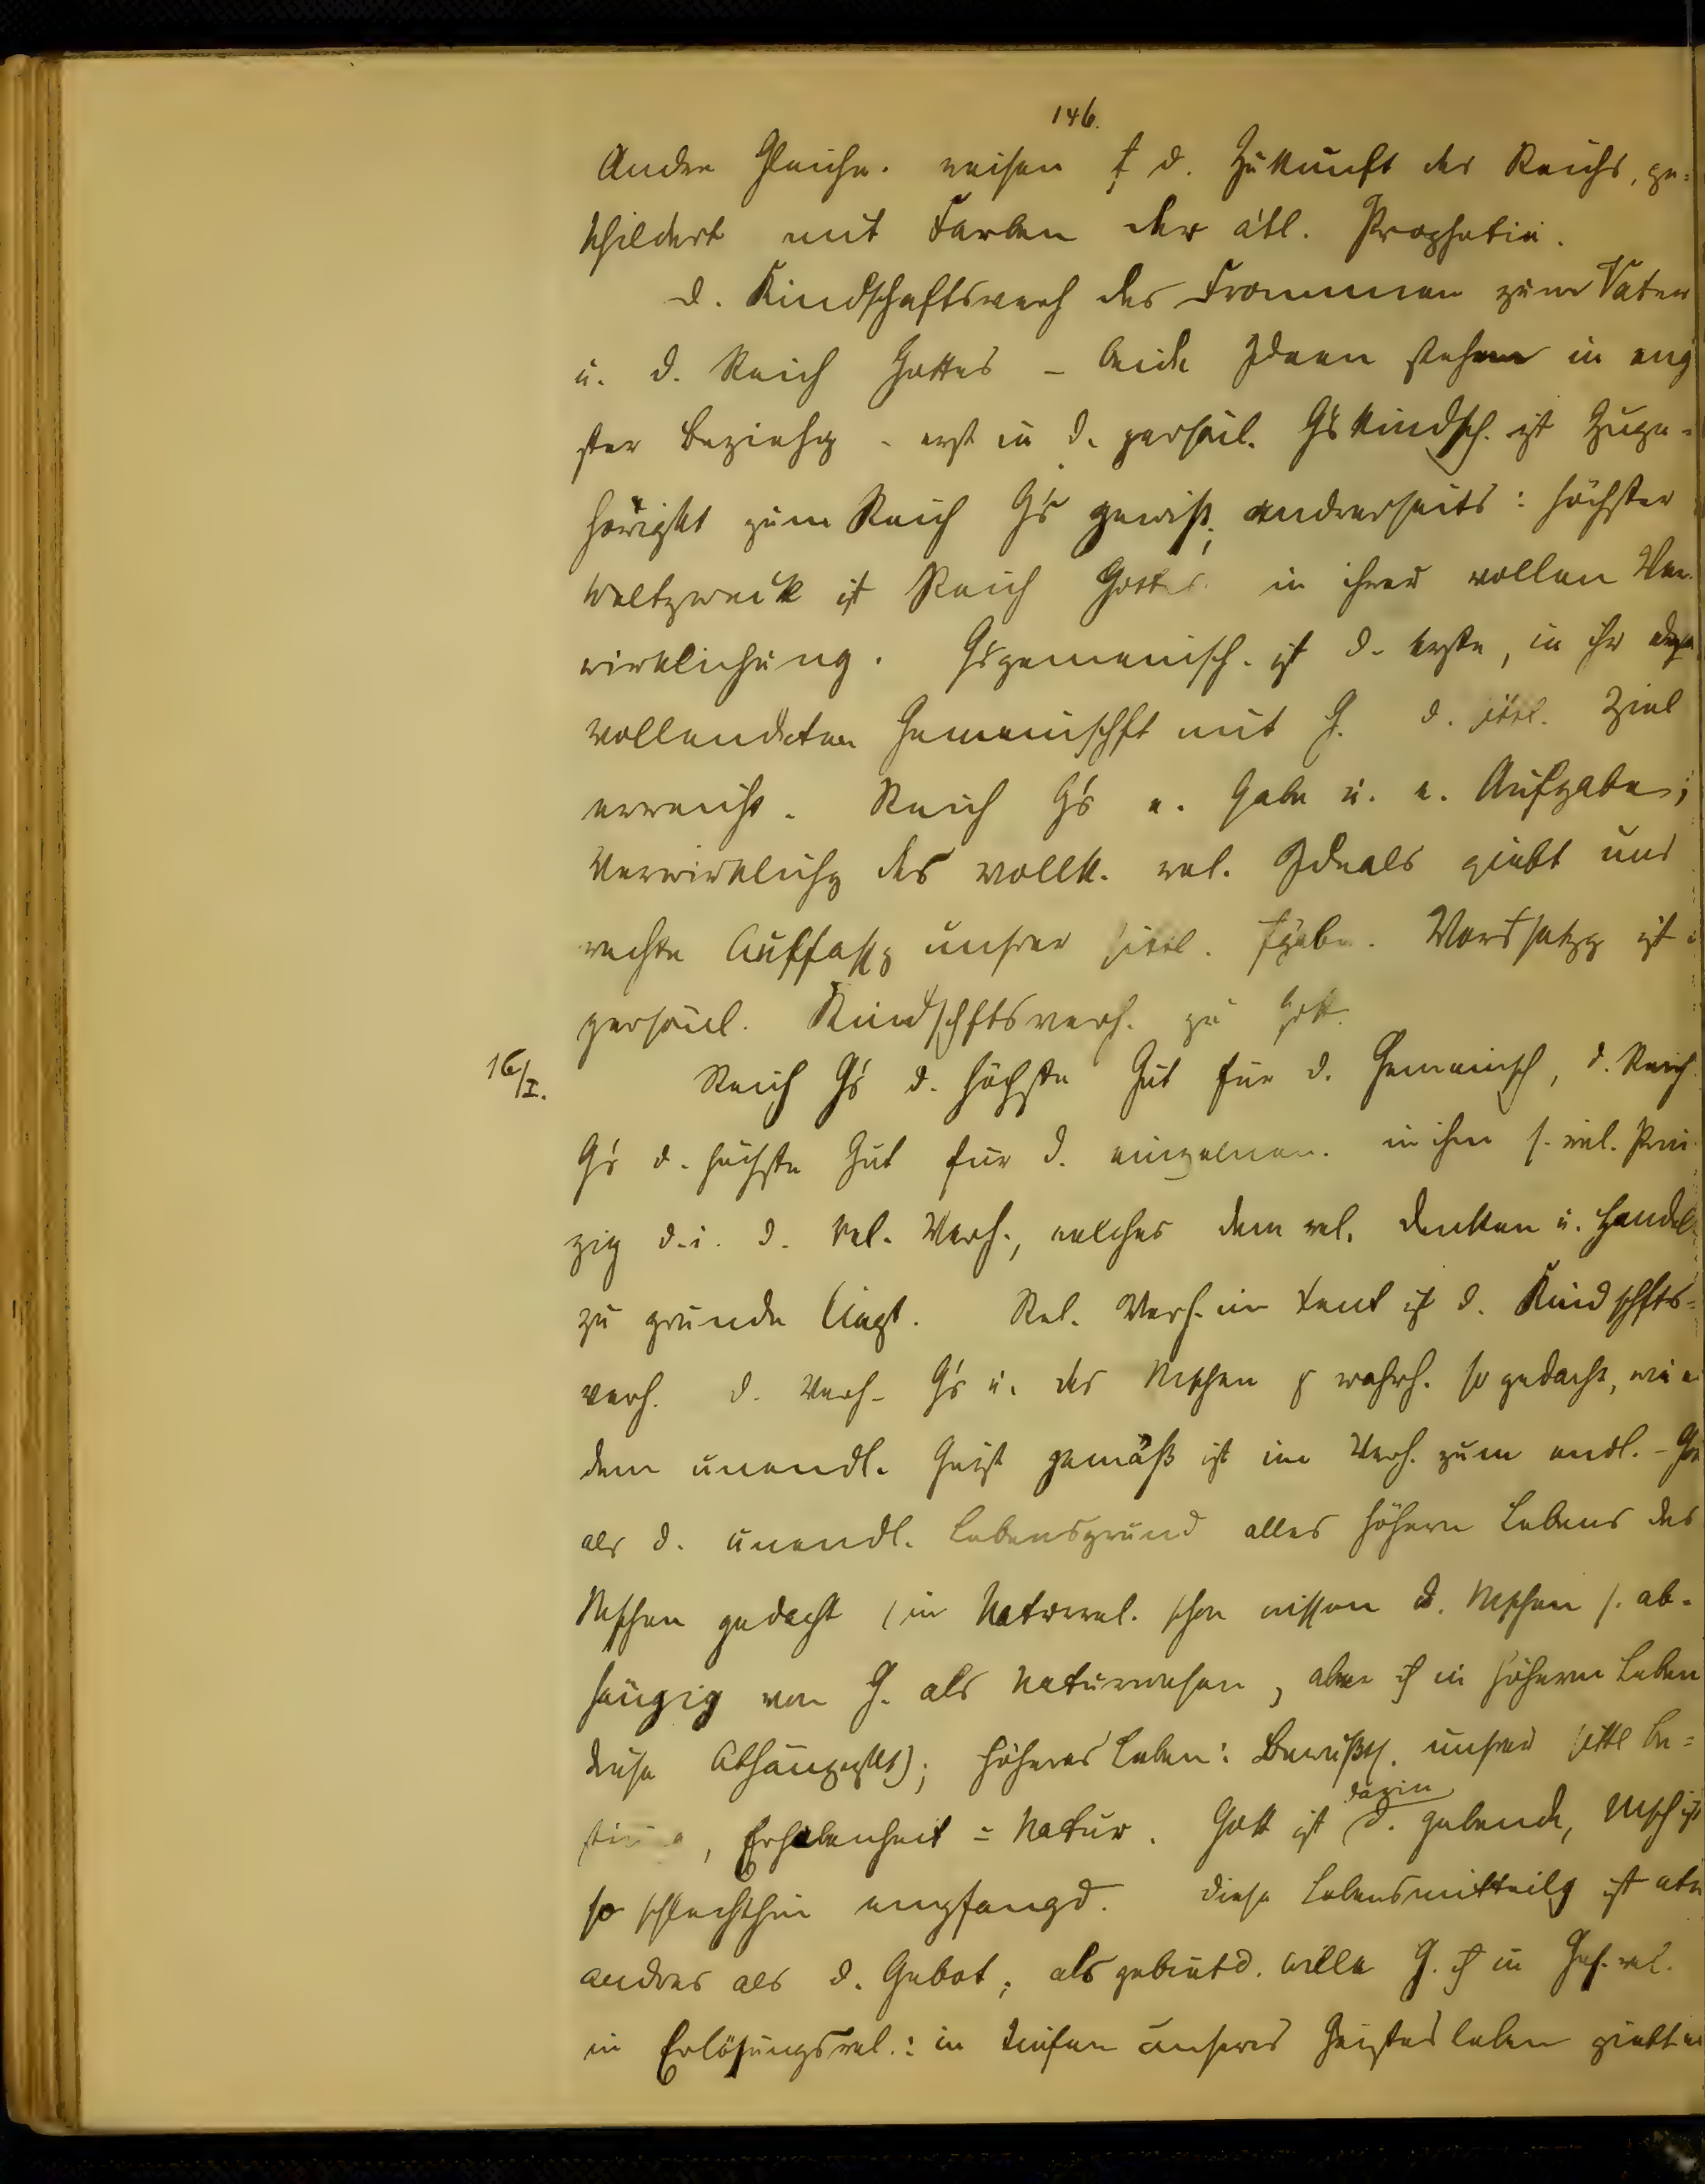 146.
Andre Gleichn. weisen f d. Zukunft des Reichs, ge-
schildert mit Farben der atl. Prophetie.
D. Kindschaftsverh des Frommen zum Vater
u. d. Reich Gottes – beide Ideen stehen in eng
ster Beziehg - erst in d. persönl. Gs Kindsch. ist Zuge-
hörigkt zum Reich Gs gewiß, andrerseits: höchster
Weltzweck ist Reich Gottes in ihrer vollen Ver
wirklichung. Gsgemeinsch. ist d. erste, in ihr
vollendeten Gemeinschft mit G. d. sittl. Ziel
erreicht. Reich Gs e. Gabe u. e. Aufgabe;
Verwirklichg des vollk. rel. Ideals giebt uns
rechte Auffassg unsrer sittl. fgabe. Vorssetzg ist
persönl. Kindschftsverh. zu Gott.
16/I. Reich Gs d. höchste Gut für d. Gemeinsch, d. Reich
Gs d. höchste Gut für d. einzelnen. in ihm s. rel. Prin
zip d.i. d. rel. Verh., welches dem rel. Denken u. Handel
zu grunde liegt. Rel. Verh. im ist d. Kindschfts-
verh. d. Verh. Gs u. des Mschen wahrh. so gedacht, wie e
dem unendl. Geist gemäß ist im Verh. zum endl. -
als d. unendl. Lebensgrund alles höhern Lebens des
Mschen gedacht (in Naturrel. schon wissen d. Mschen s. ab-
hängig von G. als Naturwesen, aber in höherm Leben
diese Abhängigkt); höheres Leben: Bewußts. unsrer sittl Be-
, Erhabenheit Natur. Gott ist darin d. gebende, Msch ist
so schlechthin empfangd. Diese Lebensmitteilg ist etw
andres als d. Gebot; als gebietd. Wille G. in Ges. rel.
in Erlösungsrel.: in Tiefen unseres Geisteslebens giebt er